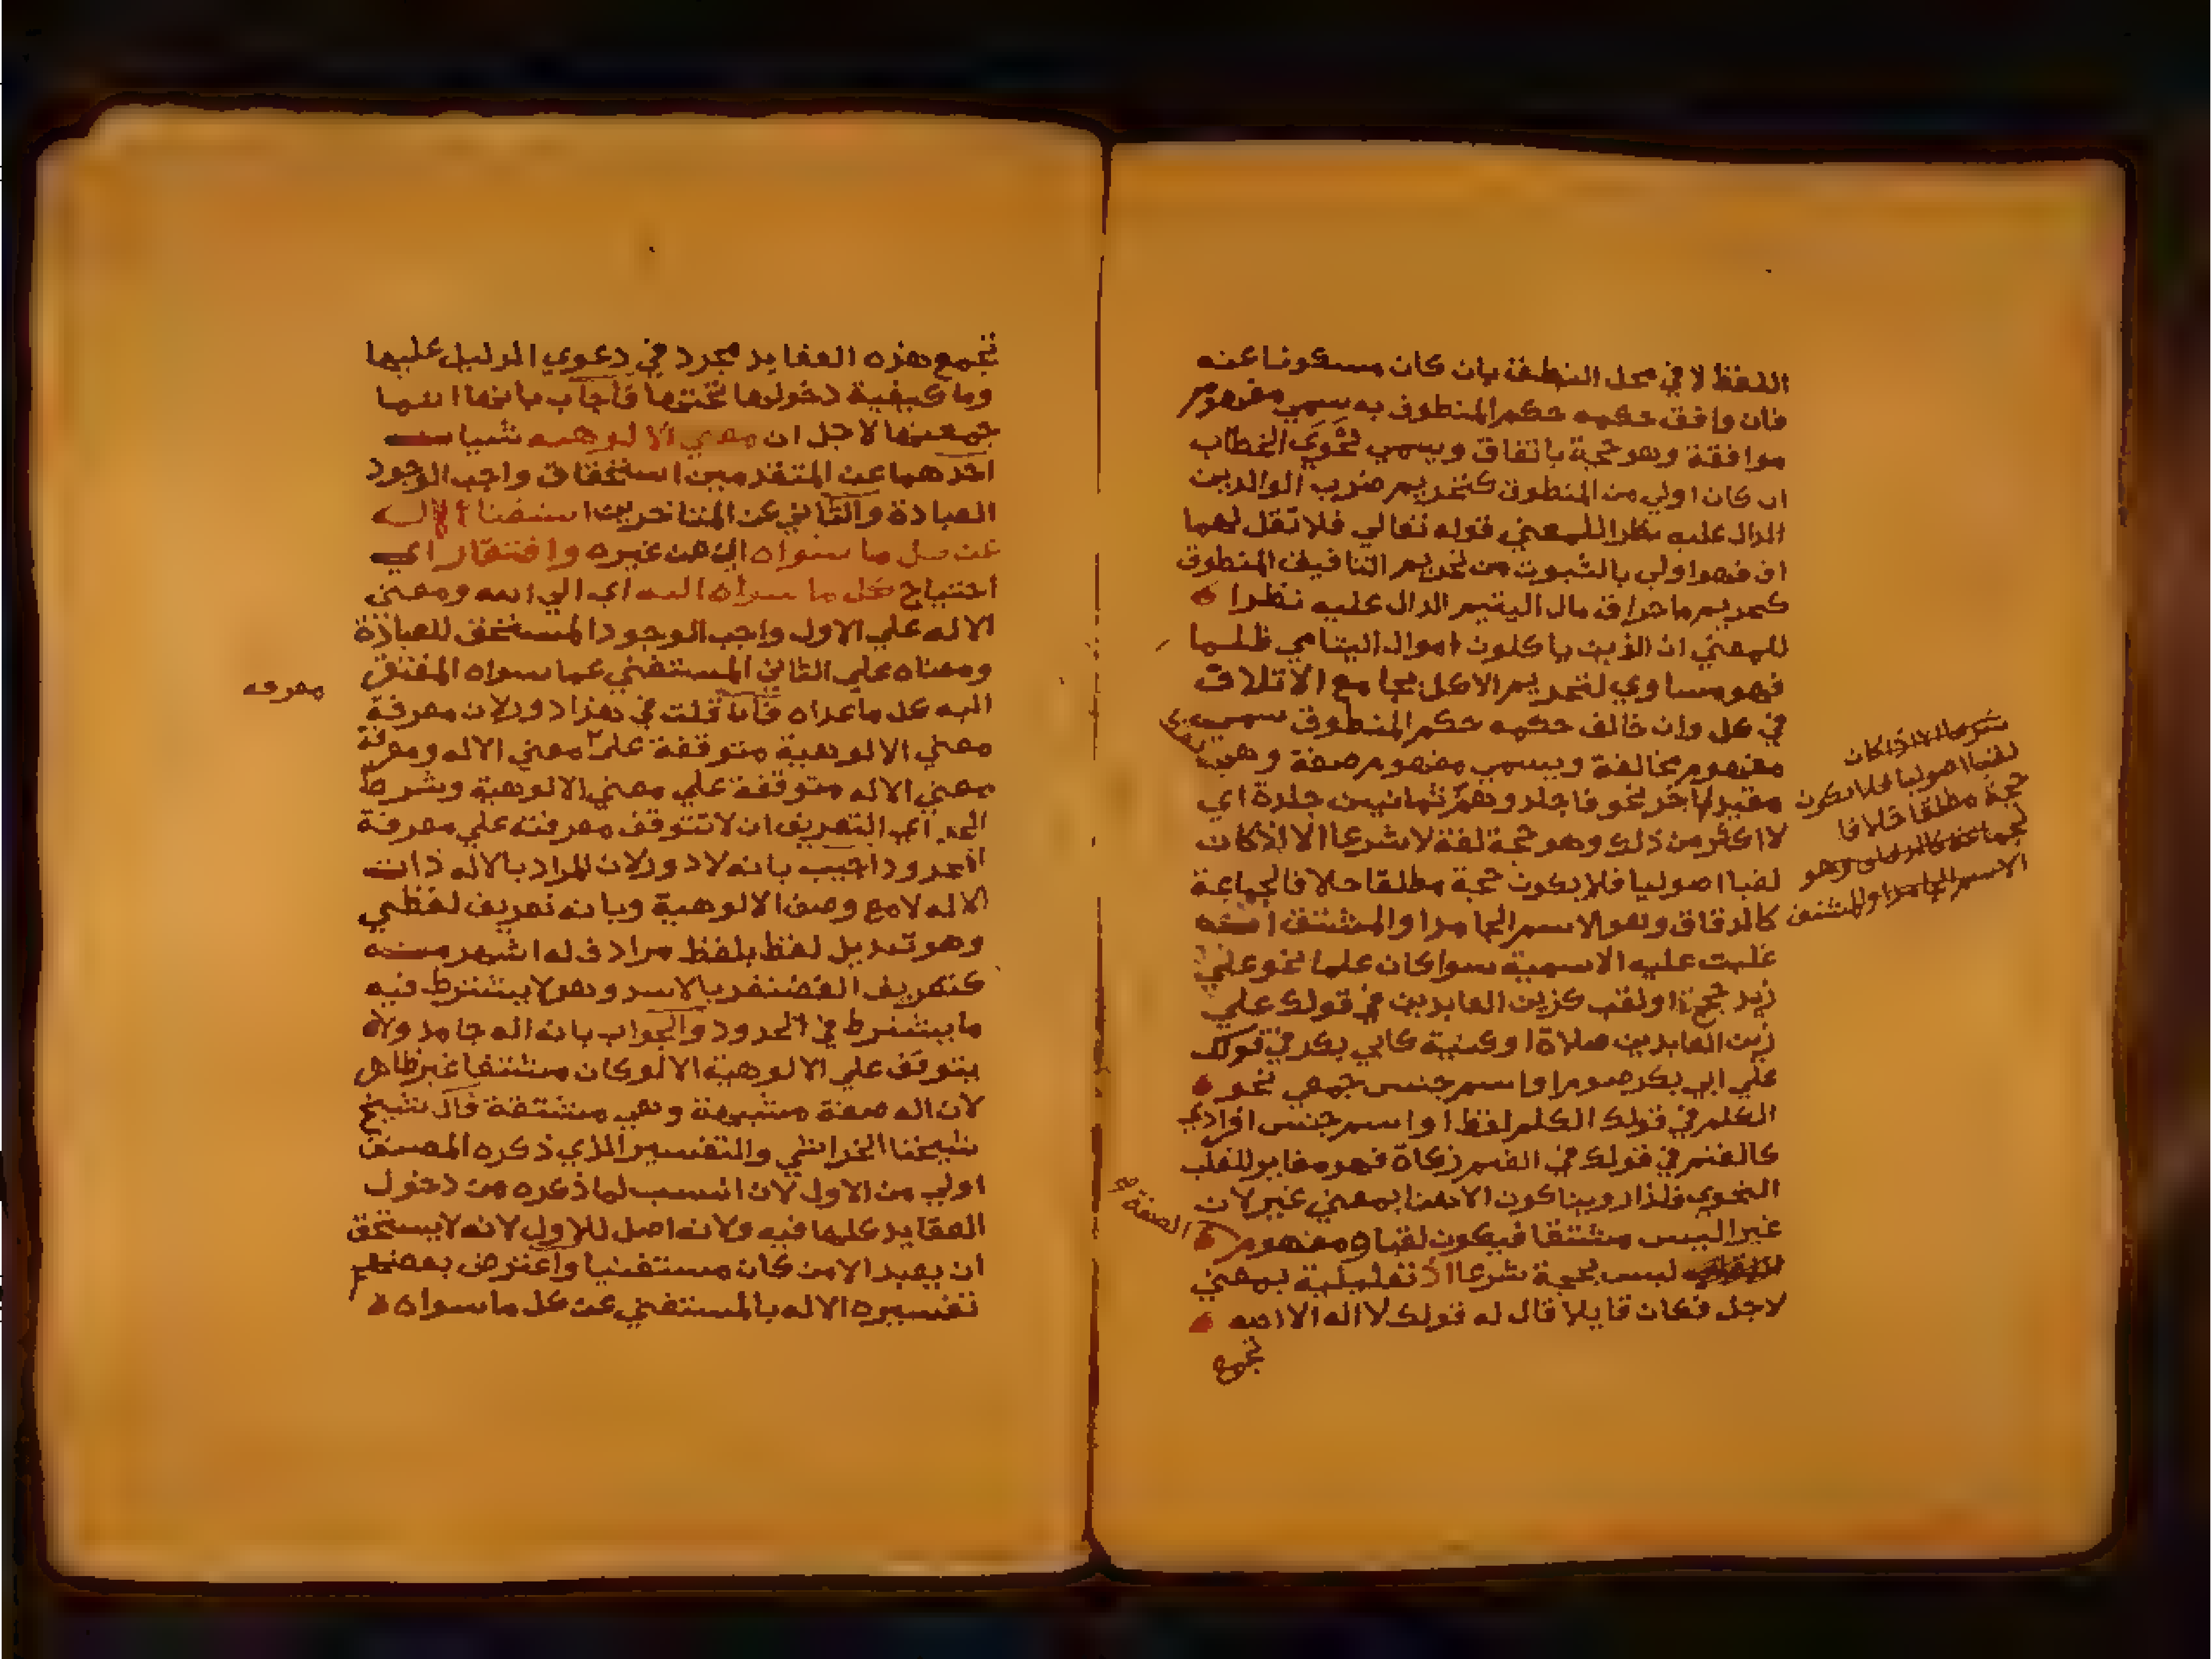 اللفظ لا في محل النطق بان كان مسكوتا عنه
فان وافق حكمه حكم المنطوق به سمي مفهوم
موافقة وهو حجة باتفاق ويسمي فحوي الخطاب
ان كان اولي من المنطوق كتحريم ضرب الوالدين
الدال عليه نظرا للمعني قوله تعالي فلا تقل لهما
اف فهو اولي بالثبوت من تحريم التافيف المنطوق
كتحريم ما حراق مال اليتيم الدال عليه نظرا
للمعني ان الذين ياكلون اموال اليتامي ظلما
فهو مساوي لتحريم الاكل بجامع الاتلاف
في كل وان خالف حكمه حكم المنطوق سمي
مفهوم مخالفة ويسمي مفهوم صفة وهي
مقيد لاخر نحو فاجلدوهم ثمانين جلدة اي
لا اكثر من ذلك وهو حجة لغة لا شرعا الا اذا كان
لقبا اصوليا فلا يكون حجة مطلقا خلافا لجماعة
كالدقاق وهو الاسم الجامد او المشتق
غلبت عليه الاسمية سوا كان علما نحو علي
زيد حج او لقب كزين العابدين في قولك علي
زين العابدين صلاة او كنية كابي بكر في قولك
علي ابي بكر صوم او اسم جنس جمعي نحو
الكلم في قولك الكلم لفظ او اسم جنس افرادي
كالغنم في قولك في الغنم زكاة فهو مغاير للقب
النحوي فلذا روينا كون الا هنا بمعني غير لان
غير اليس مشتقا فيكون لقبا ومفهوم
ليس بحجة شرعا اذ تعليلية بمعني
لاجل فكان قايلا قال له قولك لا اله الا الله
تجمع
شرعا الا اذا كان
لقبا اصوليا فلا يكون
حجة مطلقا خلافا
لجماعة كالدقاق وهو
الاسم الجامد او المشتق
الصفة صح
تجمع هذه العقايد مجرد في دعوي المدليل عليها
وما كيفية دخولها تحتها فاجاب بانها انما
جمعتها لاجل ان معني الالوهيه شيان
احدهما عن المتقدمين استحقاق واجب الوجود
العبادة والثاني عن المتاخرين استغنا الاله
عن كل ما سواه اي عن غيره وافتقار اي
احتياج كل ما سواه اليه اي الي الله ومعني
الاله علي الاول واجب الوجود المستحق للعبادة
ومعناه علي الثاني المستغني عما سواه المفتقر
اليه كل ما عداه فان قلت في هذا دور لان معرفة
معني الالوهية متوقفة علي معني الاله ومعرفة
معني الاله متوقفة علي معني الالوهية وشرط
الحد اي التعريف ان لا تتوقف معرفته علي معرفة
المحدود اجيب بانه لا دور لان المراد بالاله ذات
الاله لا مع وصف الالوهية وبانه تعريف لفظي
وهو تبديل لفظ بلفظ مرادف له اشهر منه
كتعريف الغضنفر بالاسد وهو لا يشترط فيه
ما يشترط في الحدود والجواب بان اله جامد ولا
يتوقف علي الالوهية الا لو كان مشتقا غير ظاهر
لان اله صفة مشبهة وهي مشتقة قال شيخ
شيخنا الخراشي والتفسير الذي ذكره المصنف
اولي من الاول لان انسب لما ذكره من دخول
العقايد كلها فيه ولانه اصل للاول لانه لا يستحق
ان يعبد الا من كان مستغنيا واعترض بعضهم
تفسيره الاله بالمستغني عن كل ما سواه
معرفه